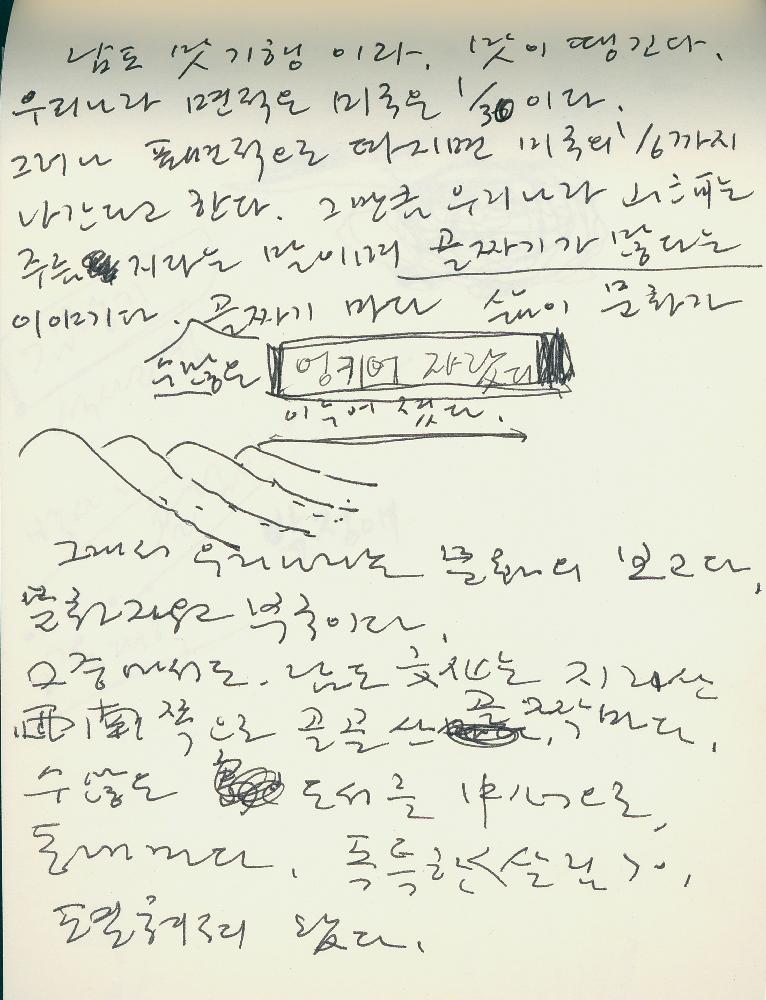 남도 맛 기행 이라. 맛이 땡긴다.
우리나라 면적은 미국의 1/30이다.
그러나 표면적으로 따지면 미국의 1/6까지
나간다고 한다. 그만큼 우리나라
주름 지다는 말이며 골짜기가 많다는
이야기다. 골짜기 마다 삶이 문화가
수많은 엉키어 자랐다
이루어 졌다.
그래서 우리나라는 문화의 보고다,
문화자원 부국이다.
그중에서도. 남도 지리산
西南쪽으로 골골 산 골짝마다,
수많은 도서를 中心으로,
동네마다. 독특한 살림
왔다.